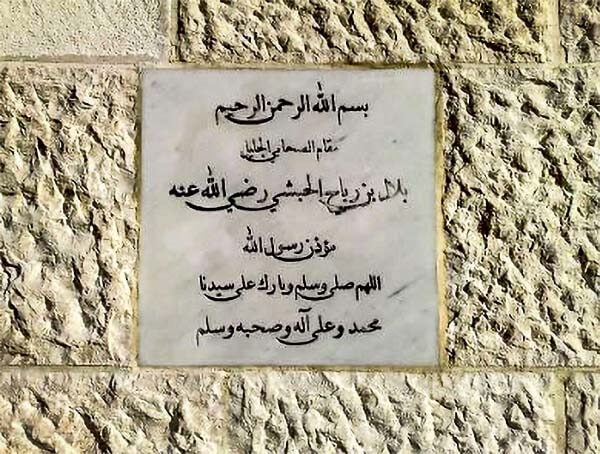 بسم الله الرحمن الرحيم
مقام الصحابي الجليل
بلال بن رباح الحبشي رضي الله عنه
مؤذن رسول الله
اللهم صلي وسلم وبارك على سيدنا
محمد وعلى آله وصحبه وسلم